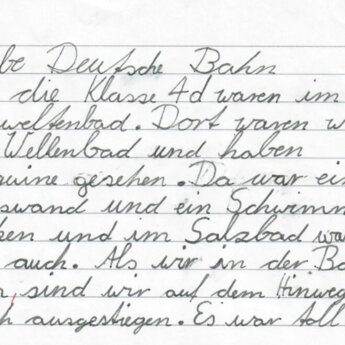 be Deutsche Bahn
die Klasse 4d waren im
weltenbad. Dort waren w
Wellenbad und haben
uine gesehen. Da war ein
swand und ein Schwimm
ken und im Salzbad wa
auch. Als wir in der Ba
n, sind wir auf dem Hinweg
h ausgestiegen. Es war toll